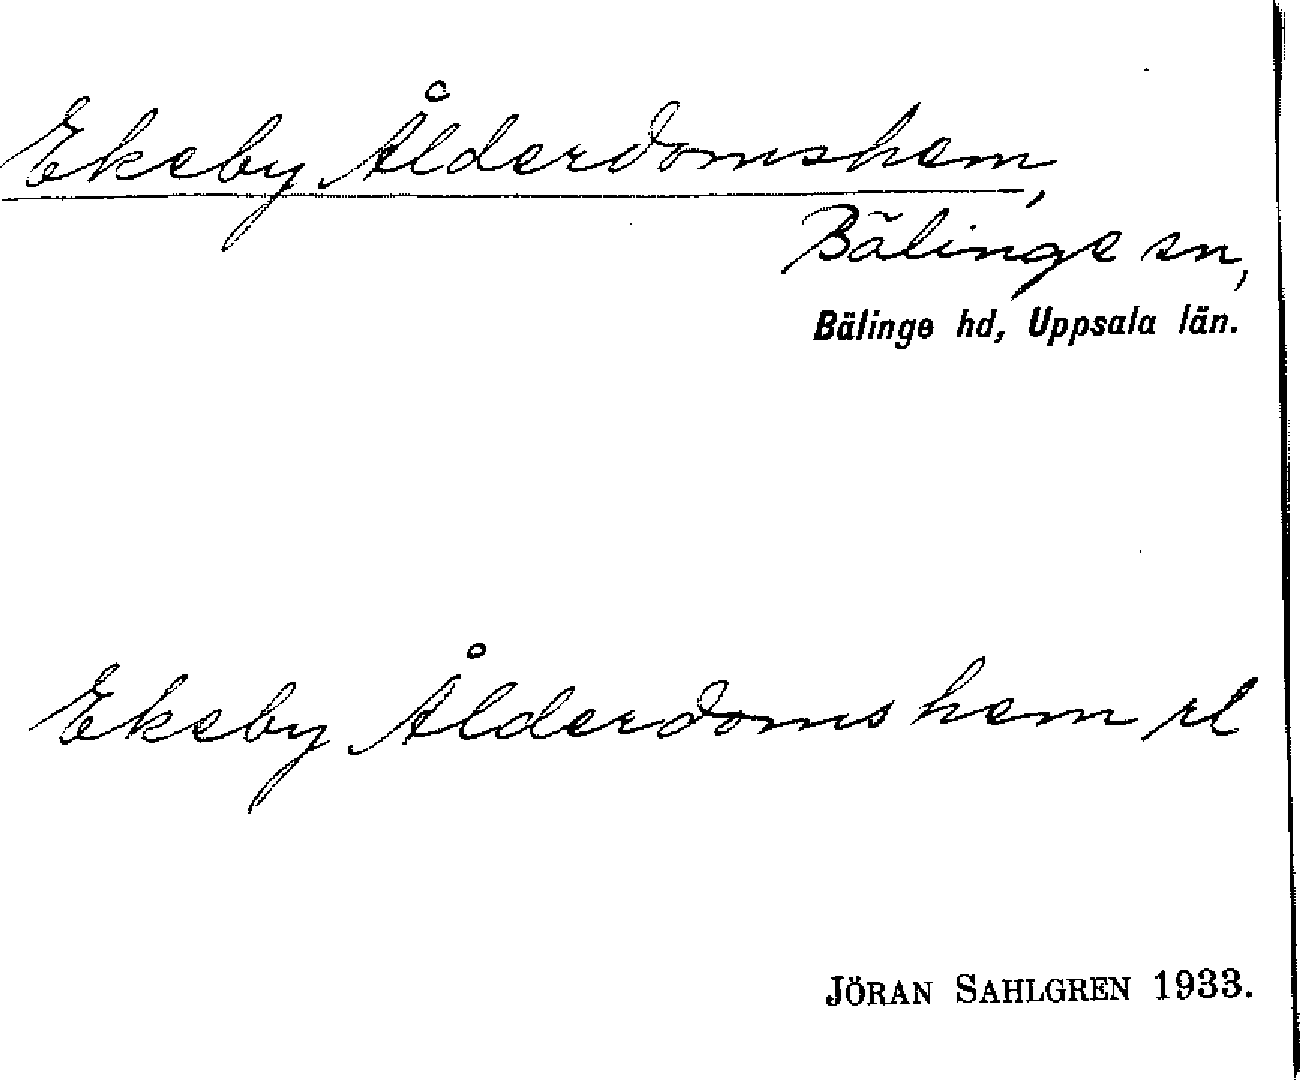 Ekeby Ålderdomshem,
Bälinge sn,
Bälinge hd, Uppsala län.
Ekeby Ålderdomshem rl
JÖRAN SAHLGREN 1933.